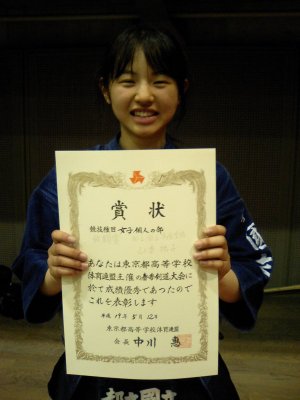 賞状
競技種目 女子個人の部
敢闘賞
あなたは東京都高等学校
体育連盟主催の春季剣道大会に
於て成績優秀であったので
これを表彰します
平成19年5月12日
東京都高等学校体育連盟
会長 中川 惠